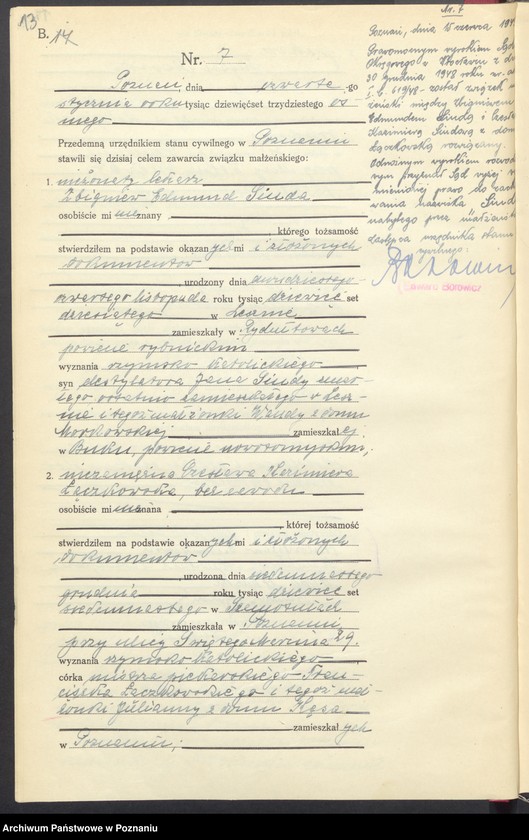 13
B. 14
Nr. 7
Poznań, dnia czwarte -go
stycznia roku tysiąc dziewięćset trzydziestego ós-
mego
Przedemną urzędnikiem stanu cywilnego w Poznaniu
stawili się dzisiaj celem zawarcia związku małżeńskiego:
1. nieżonaty lekarz
Zbigniew Edmund Sinda
osobiście mi nieznany
, którego tożsamość
stwierdziłem na podstawie okazanychmi i złożonych
dokumentów
, urodzony dnia dwudziestego
czwartego listopada roku tysiąc dziewięćset
dziesiątego w
zamieszkały w Rydułtowach
powiecie rybnickim
wyznania rzymsko katolickiego
syn destylatora Jana Sindy zmar-
łego ostatnio zamieszkałego w
i tegoż małżonki Wandy z domu
zamieszkałej
w Buku, powiecie nowotomyskim,
2. niezamężna Czesława Kazimiera
Łączkowska, bez zawodu
osobiście mi nieznana
, której tożsamość
stwierdziłem na podstawie okazanychmi i złożonych
dokumentów
, urodzona dnia siedemnastego
grudnia roku tysiąc dziewięćset
siedemnastego w
zamieszkała w Poznaniu
przy ulicy Świętego Marcina 29.
wyznania rzymsko katolickiego
córka mistrza piekarskiego Fran-
ciszka Łączkowskiego i tegoż mał-
żonki Julianny z domu
zamieszkałych
w Poznaniu;
Nr. 7
Poznań, dnia 15 czerwca
Prawomocnym wyrokiem Sądu
Okręgowego z dn.
30 grudnia 1948 roku nr. akt
został związek mał-
żeński między Zbigniewem
Edmundem Sindą i Czesławą
Kazimierą Sindową z domu
Łączkowską rozwiązany.
Odnośnym wyrokiem rozwodo-
wym przyznał Sąd wyżej wy-
mienionej prawo do zacho-
wania nazwiska Sinda
nabytego przez małżeństwo
Zastępca urzędnika stanu
cywilnego:
Edward Borowicz
Archiwum Państwowe w Poznaniu